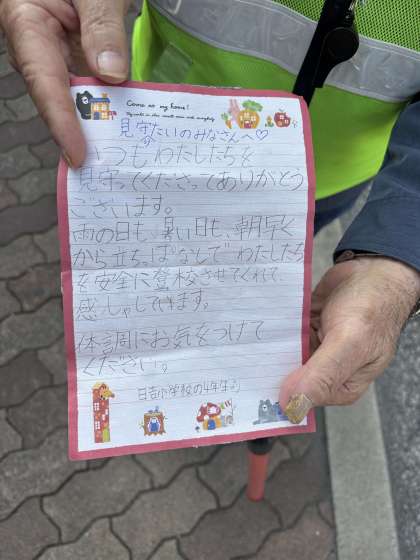 Come to my home!
見守たいのみなさんへ♡
いつもわたしたちを
見守ってくださってありがとう
ございます。
雨の日も、暑い日も、朝早く
から立ちっぱなしでわたしたち
を安全に登校させてくれて、
感しゃしています。
体調にお気をつけて
ください。
日吉小学校の4年生より